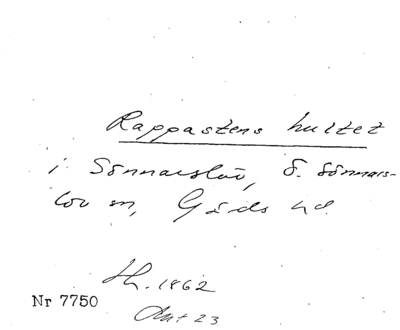 Rappastens hultet
i Sönnarslöv, Ö. Sönnars-
löv sn, Gärds hd.
H. 1862
Nr 7750